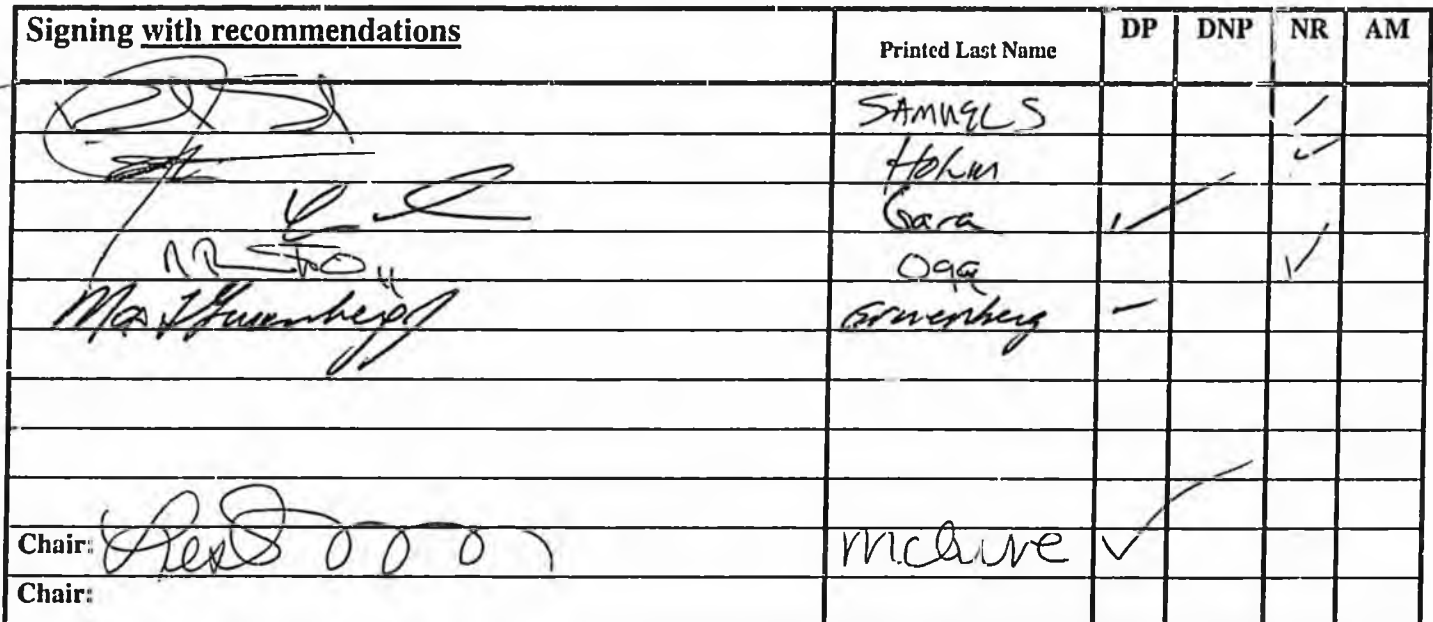 Signing with recommendations Printed Last Name DP DNP NR AM
SAMUELS ✓
Holm ✓
Gara ✓
Ogg ✓
Max F Gruenberg Gruenberg ✓
Chair: McGuire ✓
Chair: